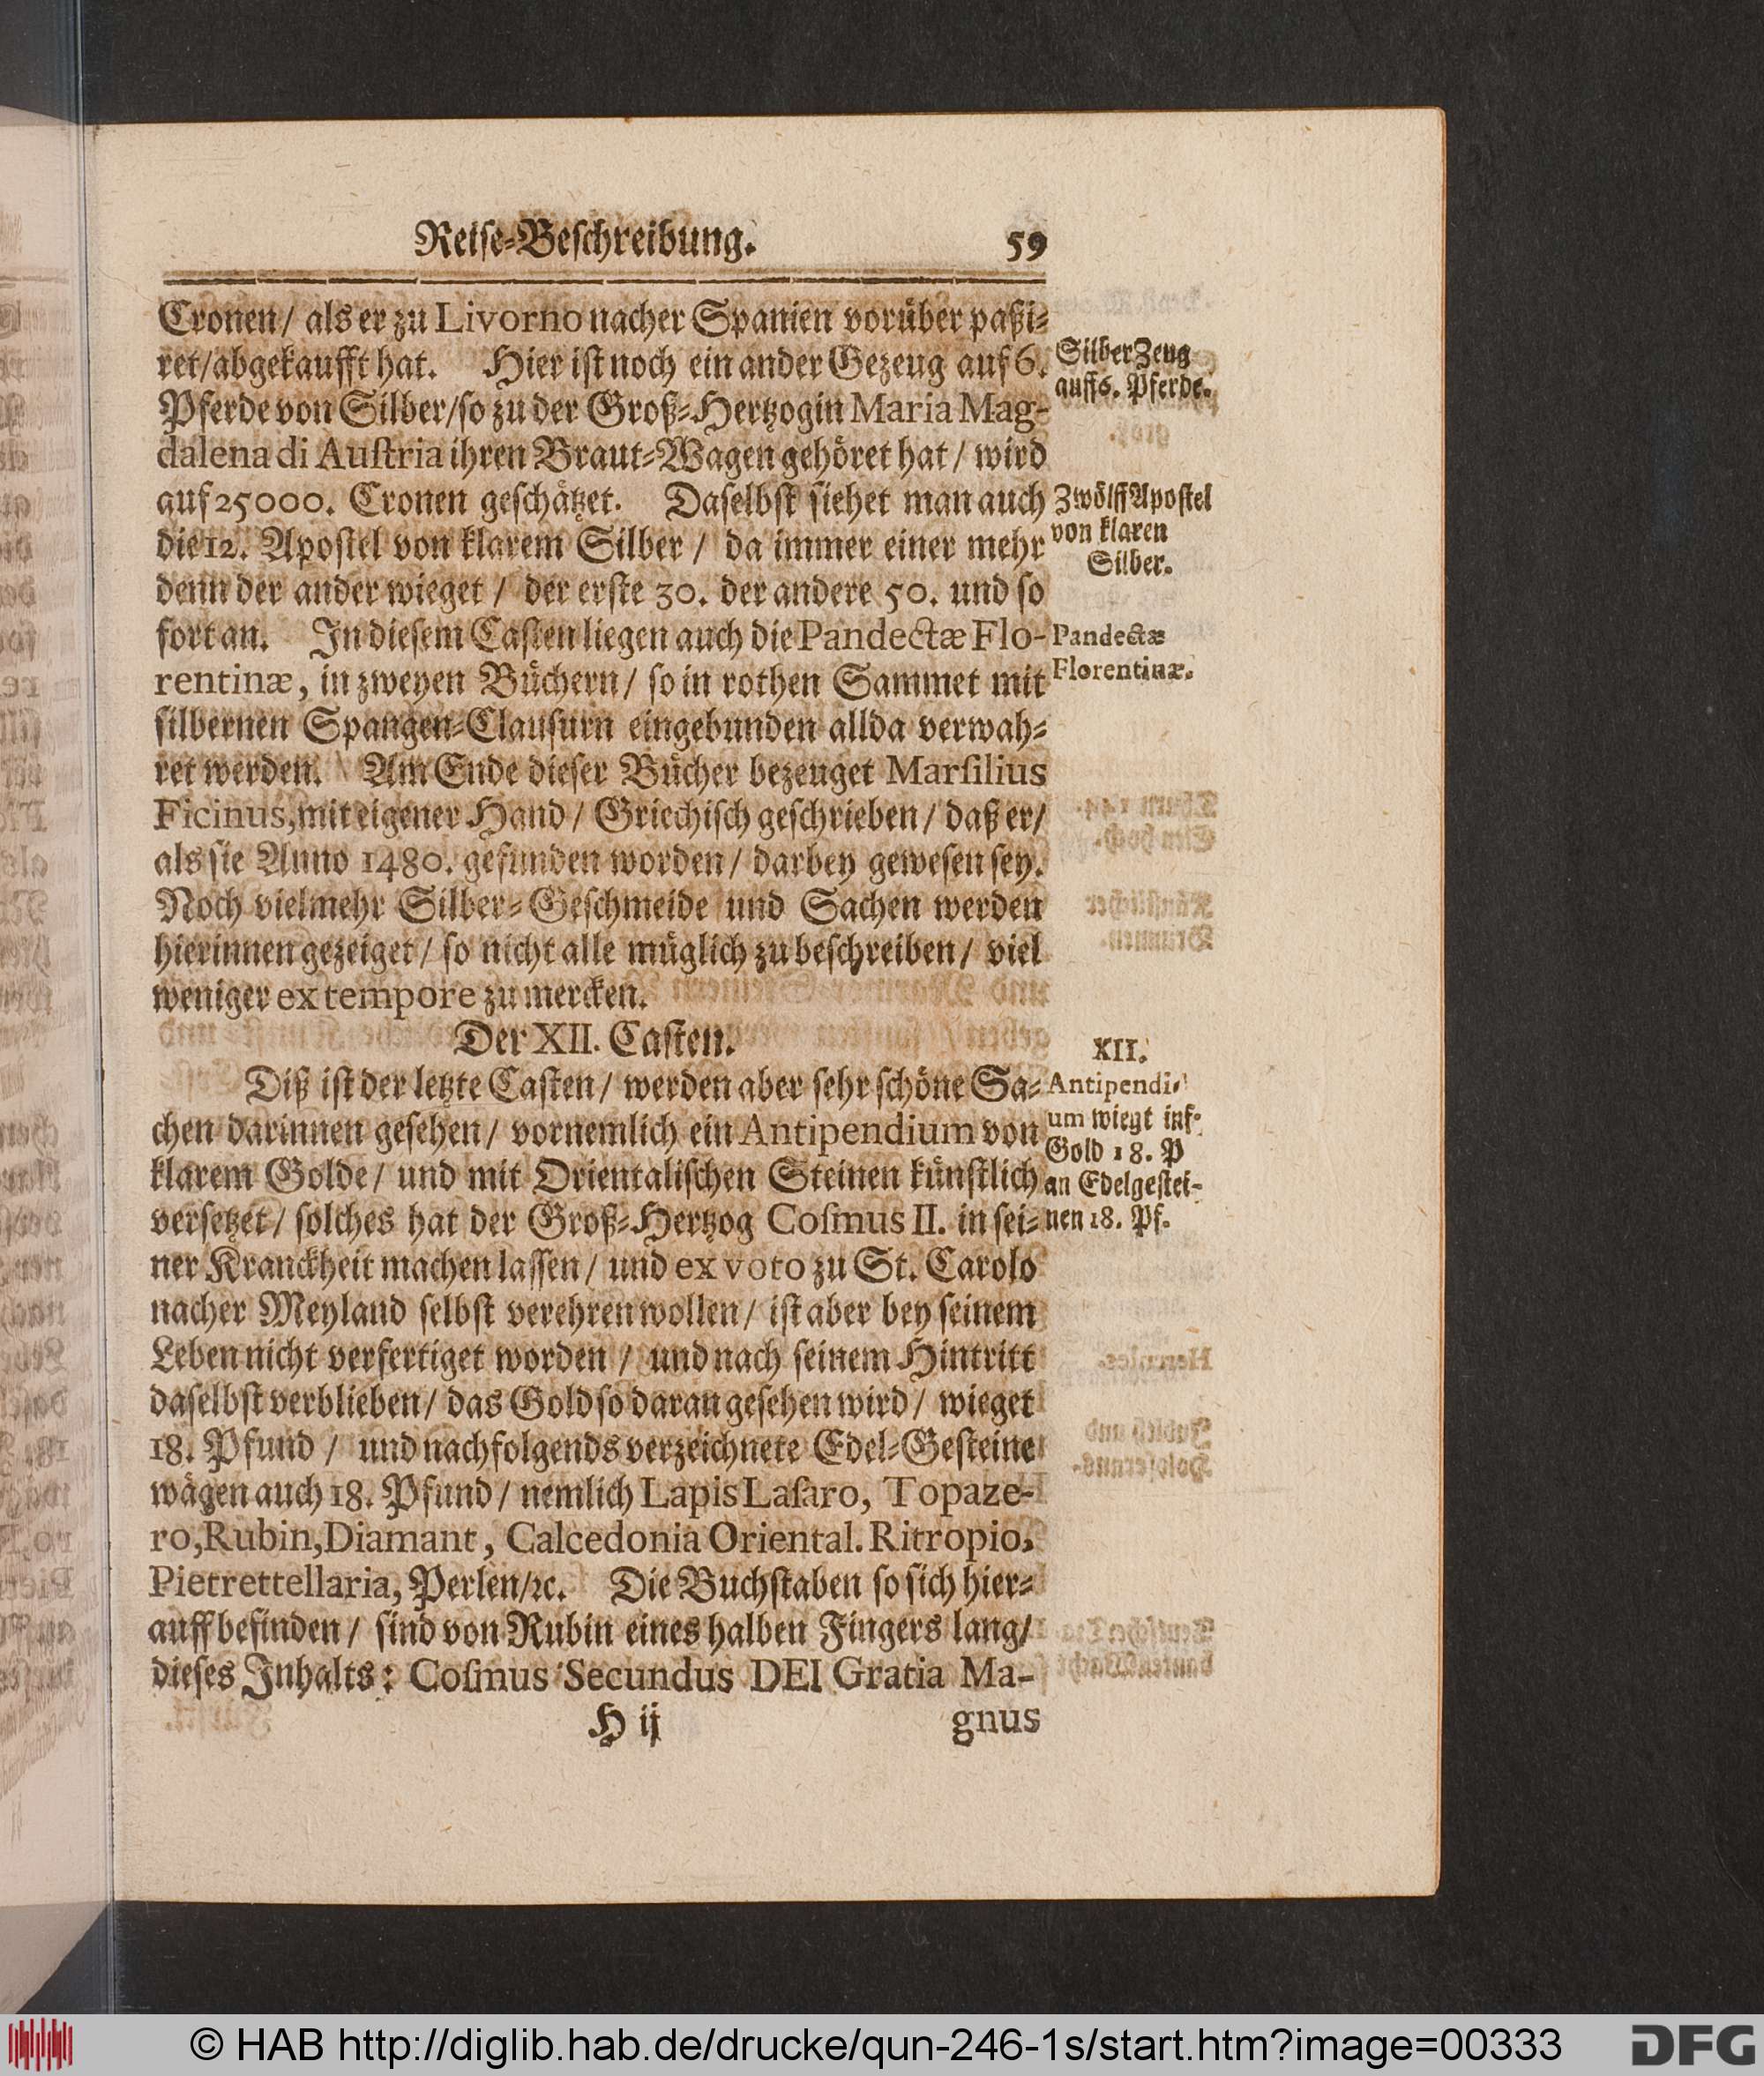 Reise-Beschreibung. 59
Cronen/ als er zu Livorno nacher Spanien vorüber paßi-
ret/abgekaufft hat. Hier ist noch ein ander Gezeug auf 6.
Pferde von Silber/so zu der Groß-Hertzogin Maria Mag-
dalena di Auſtria ihren Braut-Wagen gehöret hat/ wird
auf 25000. Cronen geschätzet. Daselbst siehet man auch
die 12. Apostel von klarem Silber/ da immer einer mehr
denn der ander wieget/ der erste 30. der andere 50. und so
fort an. In diesem Casten liegen auch die Pandectæ Flo-
rentinæ, in zweyen Büchern/ so in rothen Sammet mit
silbernen Spangen-Clausurn eingebunden allda verwah-
ret werden. Am Ende dieser Bücher bezeuget Marſilius
Ficinus, mit eigener Hand/ Griechisch geschrieben/ daß er/
als sie Anno 1480. gefunden worden/ darbey gewesen sey.
Noch vielmehr Silber-Geschmeide und Sachen werden
hierinnen gezeiget/ so nicht alle müglich zu beschreiben/ viel
weniger ex tempore zu mercken.
Der XII. Casten.
Diß ist der letzte Casten/ werden aber sehr schöne Sa-
chen darinnen gesehen/ vornemlich ein Antipendium von
klarem Golde/ und mit Orientalischen Steinen künstlich
versetzet/ solches hat der Groß-Hertzog Coſmus II. in sei-
ner Kranckheit machen lassen/ und ex voto zu St. Carolo
nacher Meyland selbst verehren wollen/ ist aber bey seinem
Leben nicht verfertiget worden/ und nach seinem Hintritt
daselbst verblieben/ das Gold so daran gesehen wird/ wieget
18. Pfund/ und nachfolgends verzeichnete Edel-Gesteine
wägen auch 18. Pfund/ nemlich Lapis Laſaro, Topaze-
ro, Rubin, Diamant, Calcedonia Oriental. Ritropio,
Pietrettellaria, Perlen/ꝛc. Die Buchstaben so sich hier-
auff befinden/ sind von Rubin eines halben Fingers lang/
dieses Inhalts: Coſmus Secundus DEI Gratia Ma-
H ij gnus
Silber Zeug
auff 6. Pferde.
Zwölff Apostel
von klaren
Silber.
Pandectæ
Florentinæ.
XII.
Antipendi-
um wiegt ins-
Gold 18. P
an Edelgestei-
nen 18. Pf.
© HAB http://diglib.hab.de/drucke/qun-246-1s/start.htm?image=00333
DFG